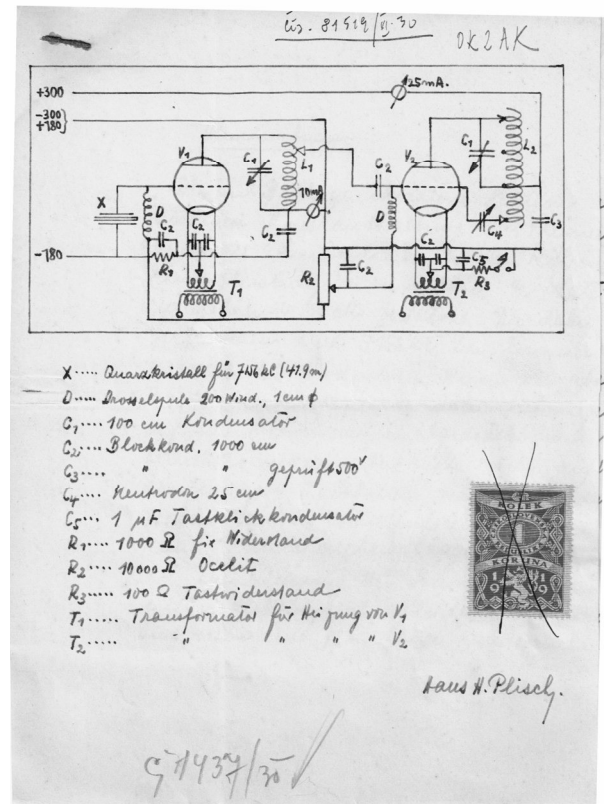 čís. 81519/VI-30
OK2AK
+300
125mA.
-300
+180
V1
C1
L1
V2
C1
L2
C2
X
D
C2
C2
10mA
C2
D
C4
C3
-180
R1
T1
R2
C2
C2
C5
R3
T2
X ..... Quarzkristall für 7156 kC (41.9 m)
D ..... Drosselspule 200 Wind., 1 cm ϕ
C1 .... 100 cm Kondensator
C2 .... Blockkond. 1000 cm
C3 .... " " geprüft 500V
C4 .... Neutrodon 25 cm
C5 ... 1 µF Tastklickkondensator
R1 .... 1000 Ω fix Widerstand
R2 .... 10000 Ω Ocelit
R3 .... 100 Ω Tastwiderstand
T1 ..... Transformator für Heizung von V1
T2 ..... " " " " V2
KOLEK
KORUNA
1919
Hans H. Plisch.